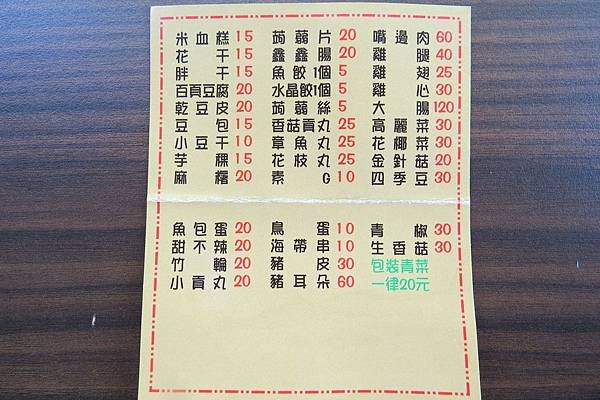 米血糕 15 蒟蒻片 20 嘴邊肉 60
花干 15 鑫鑫腸 20 雞腿 40
胖干 15 魚餃1個 5 雞翅 25
百頁豆腐 20 水晶餃1個 5 雞心 30
乾豆皮 20 蒟蒻絲 5 大腸 120
豆包 15 香菇貢丸 25 高麗菜 30
小豆干 10 章魚丸 25 花椰菜 30
芋粿 15 花枝丸 25 金針菇 20
麻糬 20 素G 10 四季豆 30
魚包蛋 20 鳥蛋 10 青椒 30
甜不辣 20 海帶串 10 生香菇 30
竹輪 20 豬皮 30 包裝青菜
小貢丸 20 豬耳朵 60 一律20元